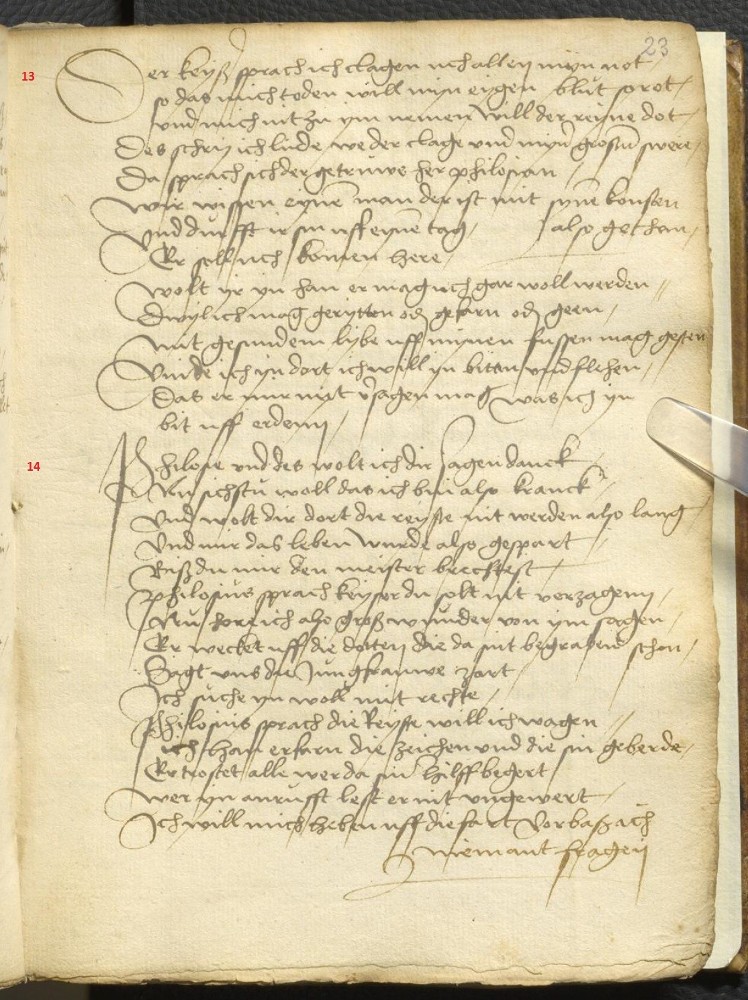 23
13
Der keyß sprach ich clagen uch allen myn not /
so das mich toden will myn eygen blut so rot /
und mich nit zu ym nemen will der reyne dot
Des schry ich lude we der clage und myner grosen swere /
Da sprach sich der getruwe her philosian
Wir wissen eynen man der ist mit synen konsten
also gethan /
Und durfft ir sin uff eynen tag /
Er soll uch komen here /
Wolt yr yn han er mag uch gar woll werden //
Dwyl ich mag gerytten oder gefarn oder geen /
mit gesundem lybe uff mynen fussen mag gesten
Vinde ich yn dort ich will yn bitten und flehen /
Das er mir nyt versagen mag was ich yn
bit uff erdenn /
14
Philosie und des wolt ich dir sagen danck
Nu sichstu woll das ich bin also kranck
Und wolt dir dort die reyße nit werden also lang
Und mir das leben wurde also gespart
Biß du mir den meister brechtest /
philosius sprach keyser du solt nit verzagenn /
Nu hore ich also groß wunder von ym sagen /
Er wecket uff die dotten die da sint begraben schon /
Sagt uns die Jungfrauwe zart
Ich suche yn woll mit rechte /
Philosius sprach die Reyße will ich wagen //
ich han erfarn die zeichen und die sin geberde /
Er trostet alle wer da sin hilff begert
wer yn anrufft lest er nit ungewert
Ich will mich heben uff die fart vorbaß ich
niemant fragen